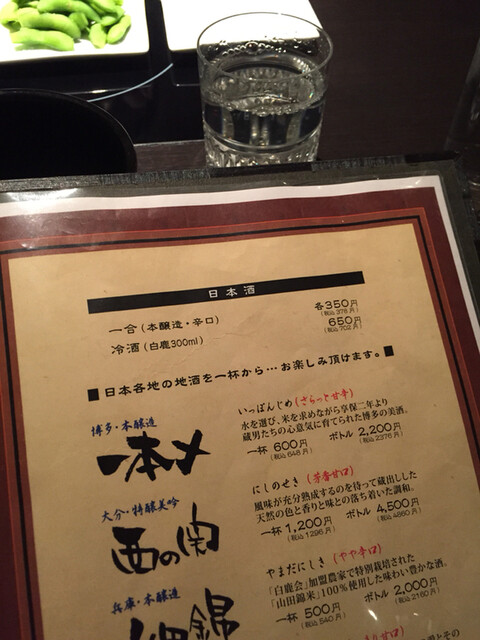 日本酒
一合(本醸造・辛口) 各350円
(税込 378円)
冷酒(白鹿300ml) 650円
(税込 702円)
■日本各地の地酒を一杯から…お楽しみ頂けます。■
博多・本醸造
一本〆
いっぽんじめ(さらっと甘辛)
水を選び、米を求めながら享保二年より
蔵男たちの心意気に育てられた博多の美酒。
一杯 600円 ボトル 2,200円
(税込 648円) (税込 2376円)
大分・特醸美吟
西の関
にしのせき(芳香甘口)
風味が充分熟成するのを待って蔵出しした
天然の色と香りと味との落ち着いた調和。
一杯 1,200円 ボトル 4,500円
(税込 1296円) (税込 4860円)
兵庫・本醸造
山田錦
やまだにしき(やや辛口)
「白鹿会」加盟農家で特別栽培された
「山田錦米」100%使用した味わい豊かな酒。
一杯 500円 ボトル 2,000円
(税込 540円) (税込 2160円)